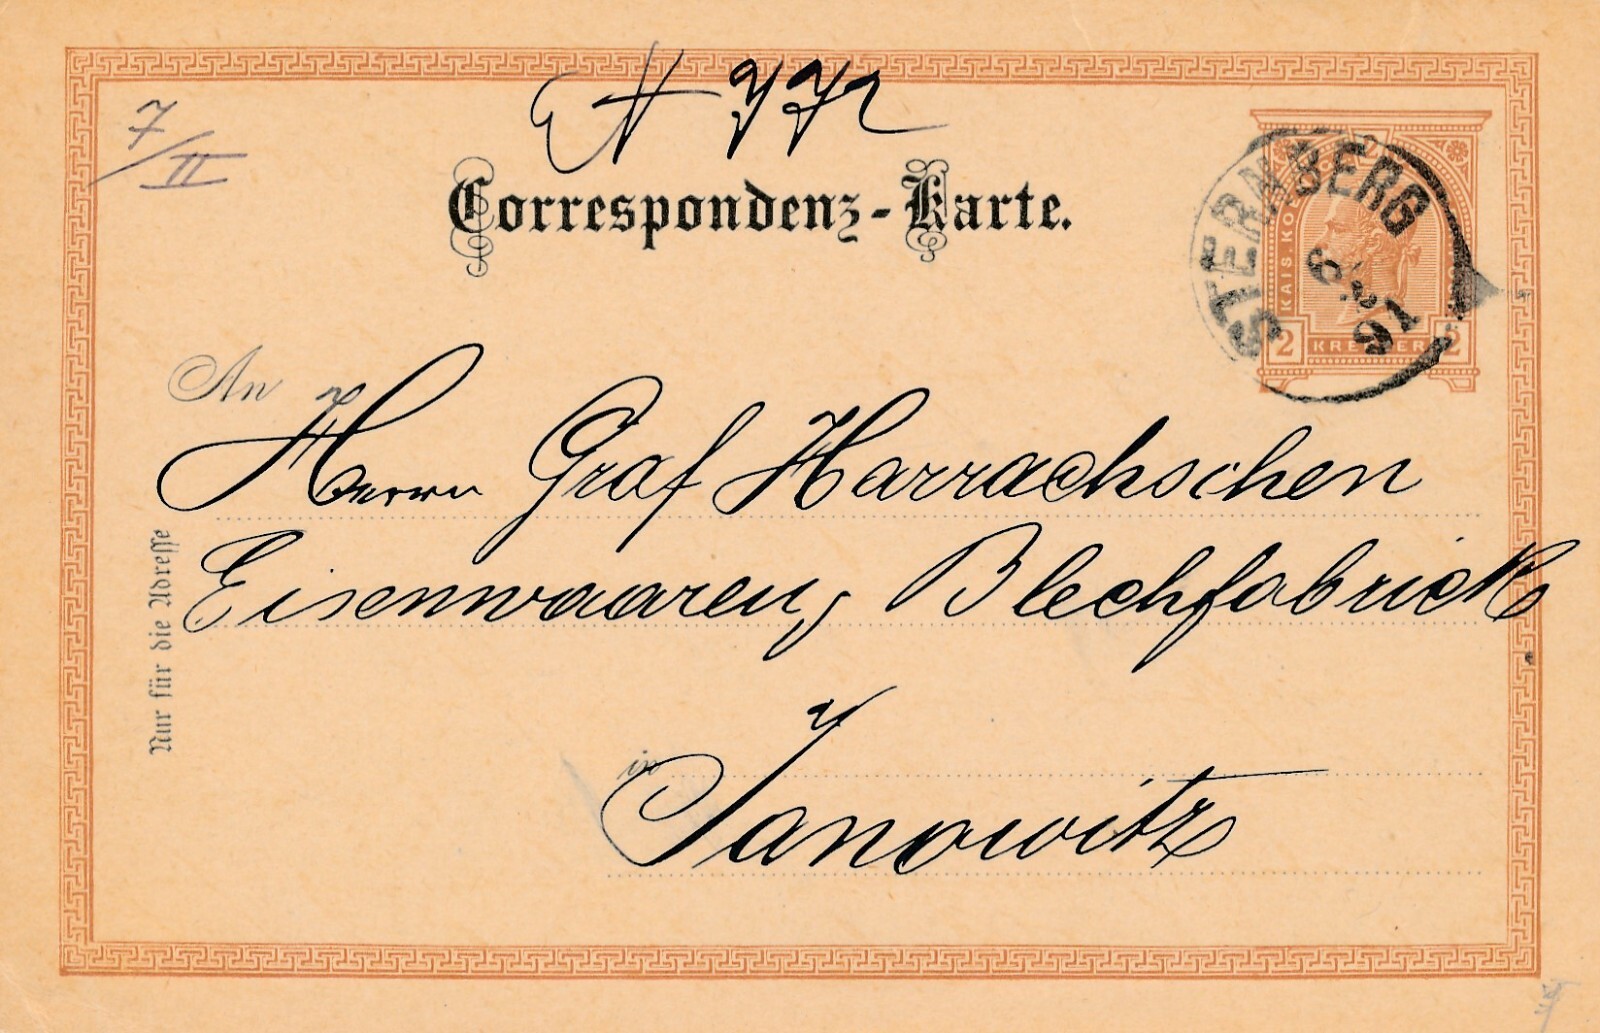 7/II
N 772
Correspondenz-Karte.
STERNBERG
6 2 91
KAIS. KÖ
2 KREUZER 2
An
Herrn Graf Harrachschen
Eisenwaaren, Blechfabrick
Nur für die Adresse
in
Janowitz